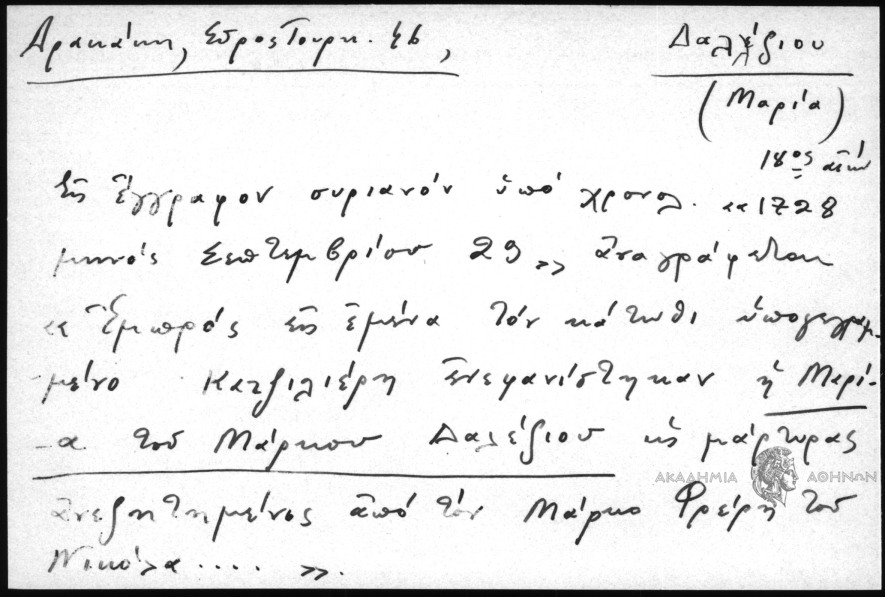 Δρακάκη, Σύρος Τουρκ. 46,
Δαλέζιου
(Μαρία)
18ος αἰών
Εἰς ἔγγραφον συριανόν ὑπό χρονολ. «1728
μηνός Σεπτεμβρίου 29» ἀναγράφεται
«Ἐμπρός εἰς ἐμένα τόν κάτωθι ὑπογεγραμ-
μένο Κατζιλιέρη ἐνεφανίστηκαν ἡ Μαρί-
-α τοῦ Μάρκου Δαλέζιου κς μάρτυρας
ἀνεζητημένος ἀπό τόν Μάρκο Φρέρη τοῦ
Νικόλα .... ».
ΑΚΑΔΗΜΙΑ ΑΘΗΝΩΝ